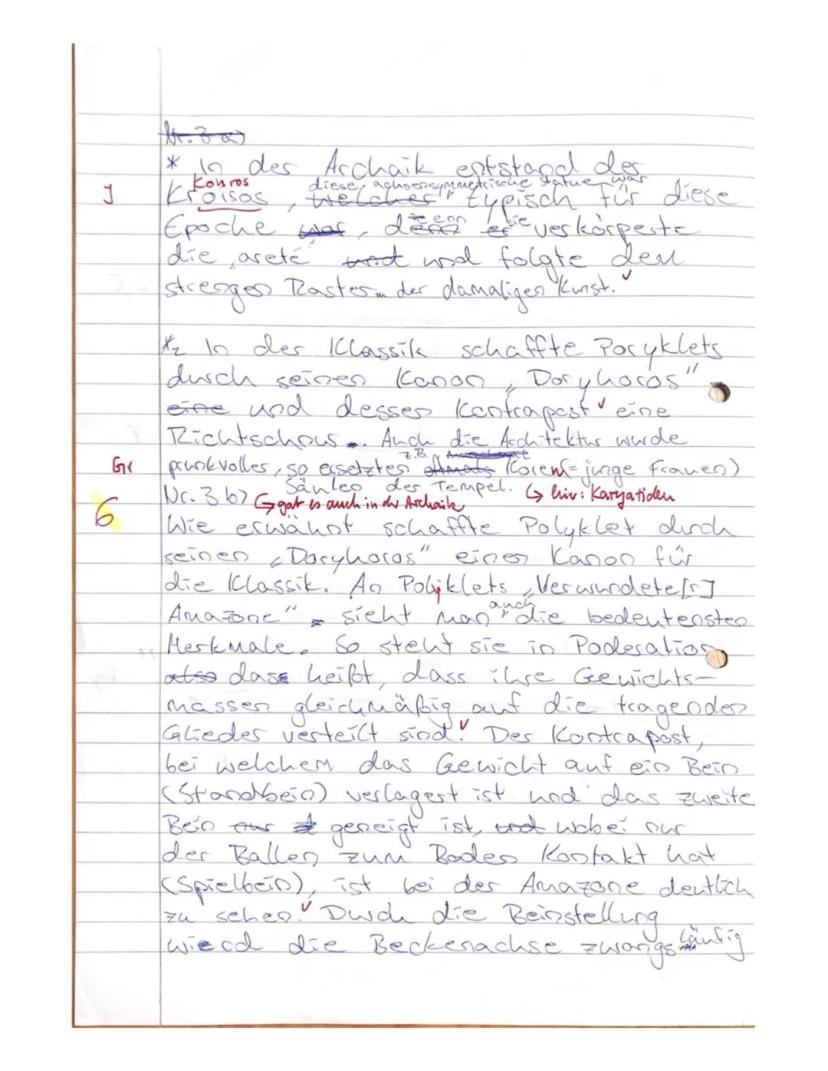 Nr. 3 a)
* In der Archaik entstand der
Kouros diese, achsensymmetrische Statue war
I Kroisos, welcher typisch für diese
Epoche war, denn er sie verkörperte
die areté und und folgte den
strengen Rastern der damaligen Kunst. ✓
*2 In der Klassik schaffte Poryklets
durch seinen Kanon „Doryhoros"
eine und dessen Kontrapost ✓ eine
Richtschnur. Auch die Architektur wurde
z.B.
Gr prunkvoller, so ersetzten oftmals Koren (= junge Frauen)
Säulen der Tempel. ↳ hier: Karyatiden
Nr. 3 b) ↳ gab es auch in der Archaik
6
Wie erwähnt schaffte Polyklet durch
seinen „Doryhoros" einen Kanon für
die Klassik. An Polyklets „Verwundete[r]
auch
Amazone" sieht man die bedeutensten
Merkmale. So steht sie in Poderation
also dass heißt, dass ihre Gewichts-
massen gleichmäßig auf die tragenden
Glieder verteilt sind. ✓ Der Kontrapost,
bei welchem das Gewicht auf ein Bein
(Standbein) verlagert ist und das zweite
Bein nur geneigt ist, und wobei nur
der Ballen zum Boden Kontakt hat
(Spielbein), ist bei der Amazone deutlich
zu sehen. ✓ Durch die Beinstellung
wierd die Beckenachse zwangsläufig